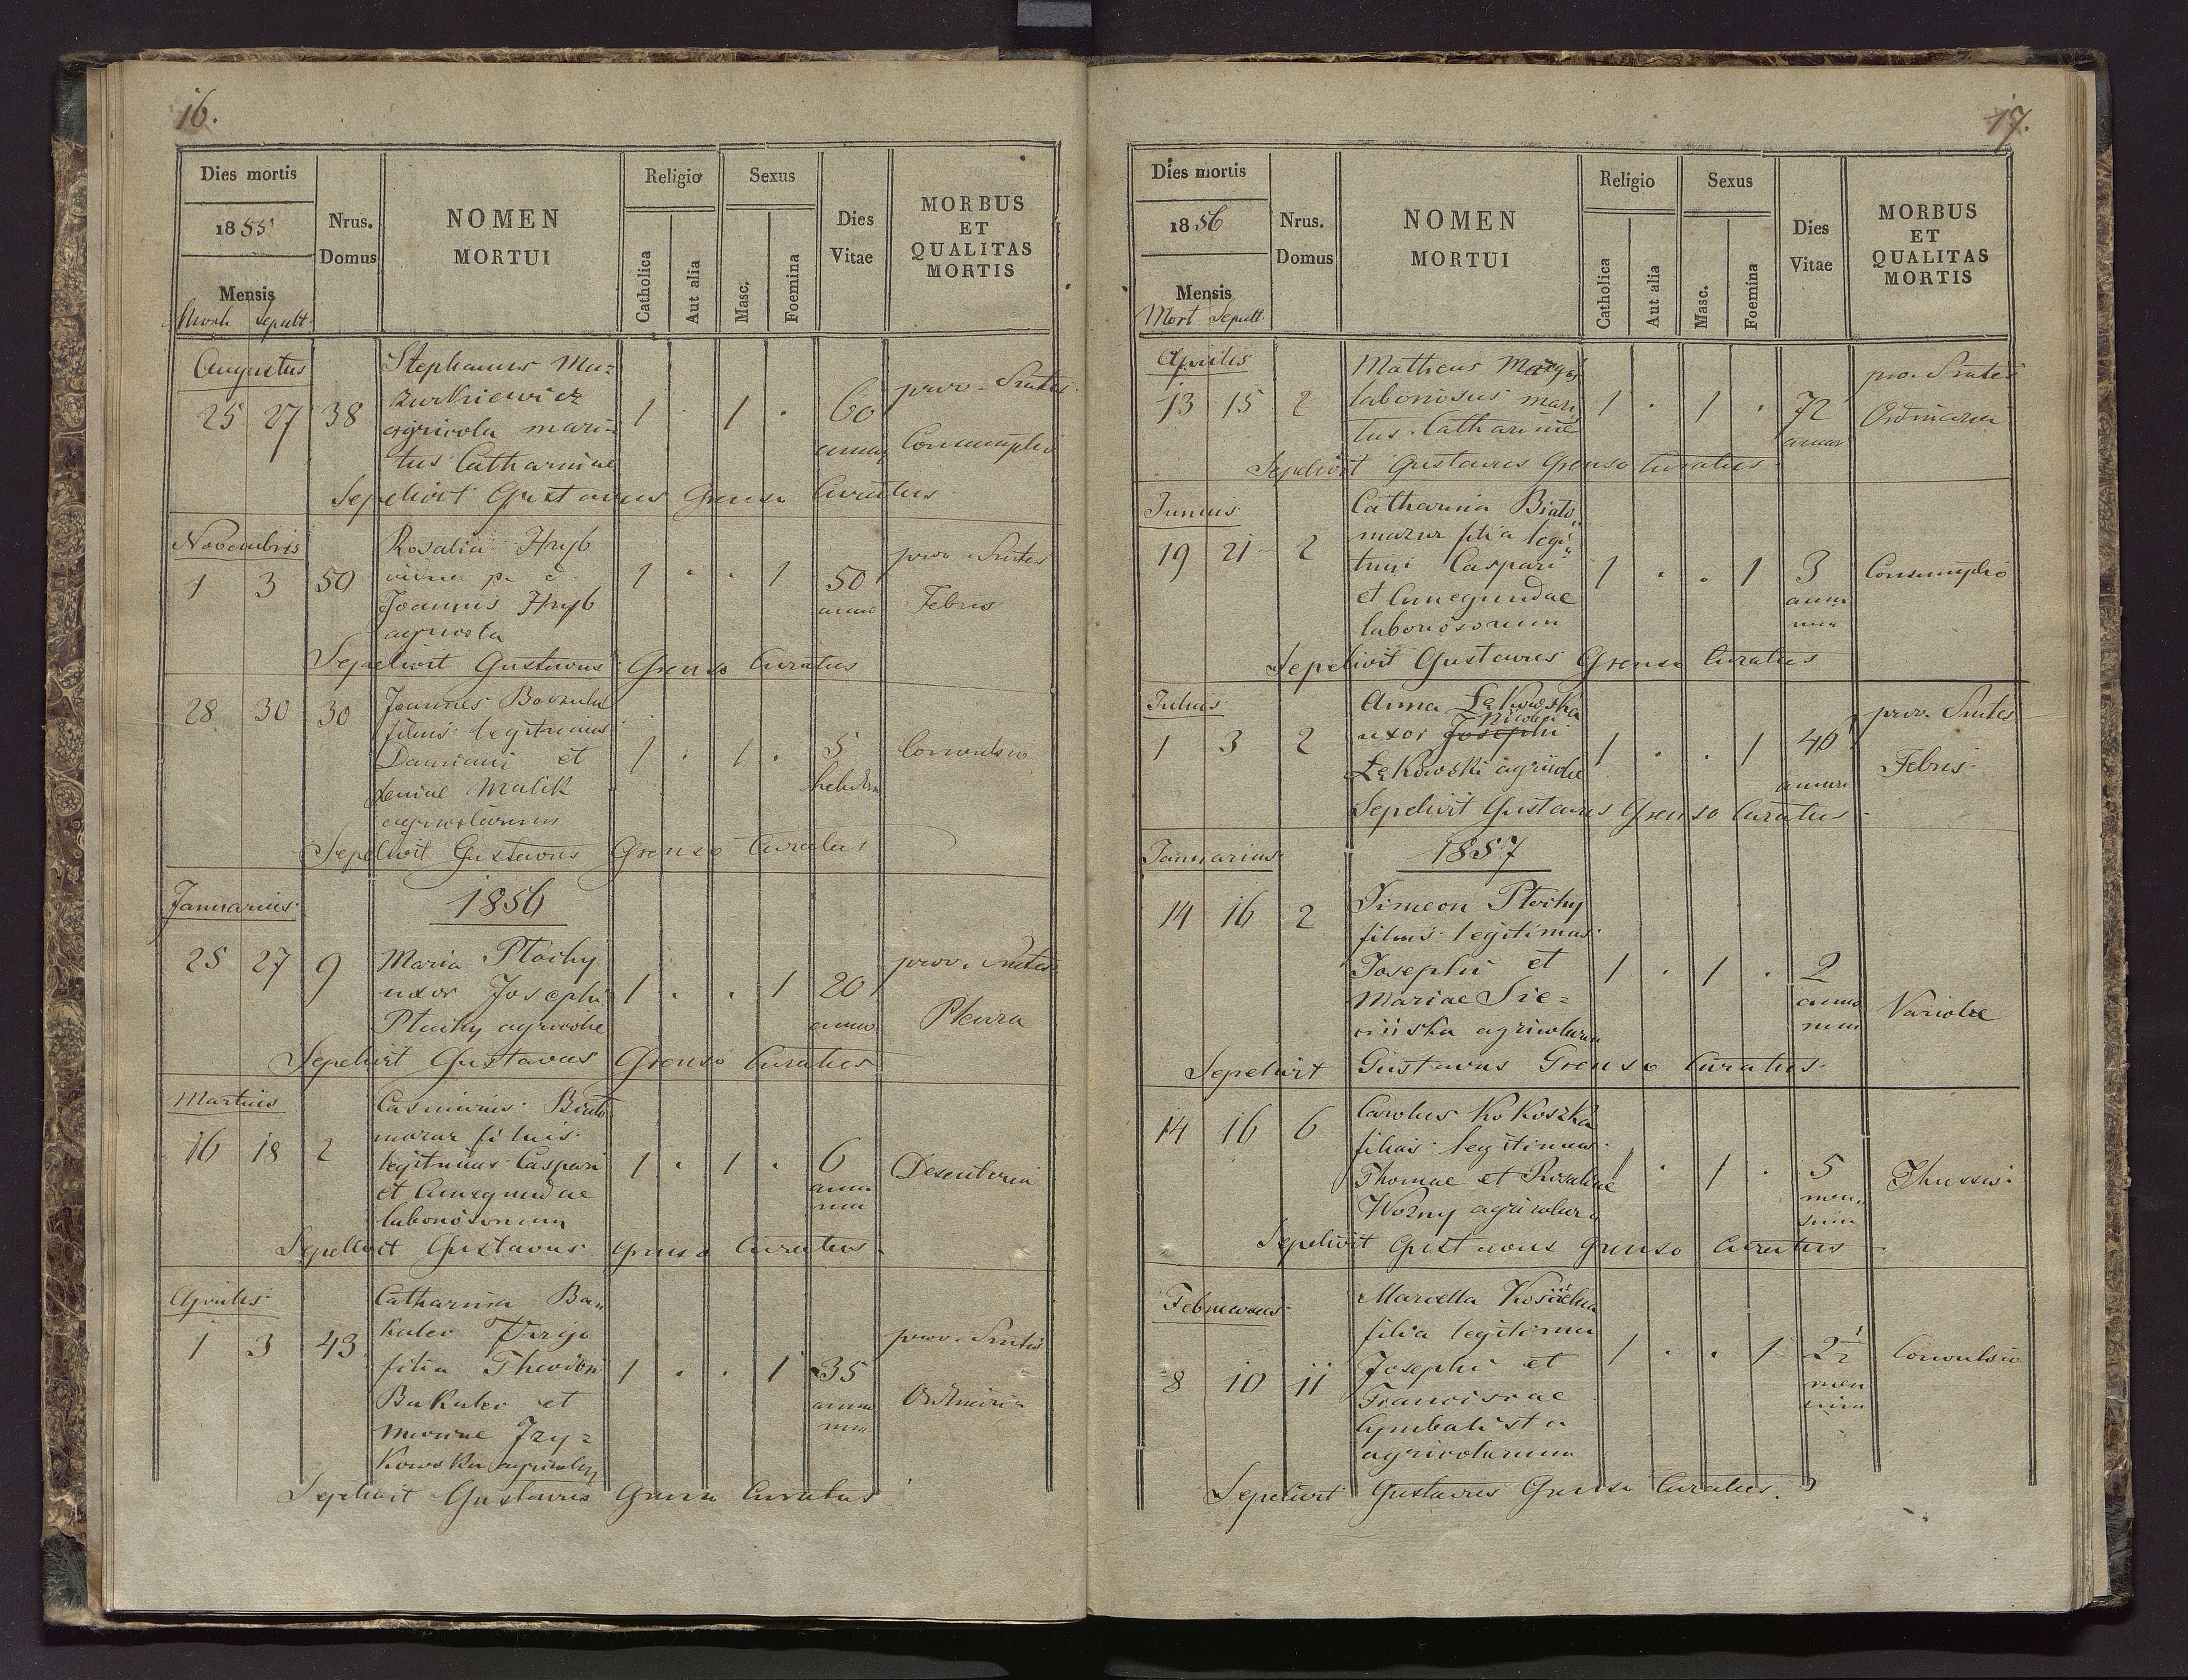 16.
Dies mortis
1855
Mensis
Mort Sepult
Nrus.
Domus
NOMEN
MORTUI
Religio
Catholica
Aut alia
Sexus
Masc.
Foemina
Dies
Vitae
MORBUS
ET
QUALITAS
MORTIS
Augustus
25 27 38
Stephanus Ma=
zurkiewicz
agricola mari=
tus Catharinae
1 . 1 . 60
prov.
Consumptio
Sepelivit Gustavus Grenso Curatus
Novembris
1 3 50
Rosalia Hryb
vidua p.
Joannis Hryb
agricola
1 . . 1 50
anno
prov.
Febris
Sepelivit Gustavus Grenso Curatus
28 30 30
Joannes
filius legitimus
Damiani et
Xeniae Malik
agricolarum
1 . 1 . 5
Convulsio
Sepelivit Gustavus Grenso Curatus
Januarius
1856
25 27 9
Maria Ptachy
uxor Josephi
Ptachy agricolae
1 . . 1 20
anno
prov.
Pleura
Sepelivit Gustavus Grenso Curatus
Martius
16 18 2
Casimirus Biało
mazur filius
legitimus Caspari
et Cunegundae
laboriosorum
1 . 1 . 6
anno
rum
Desenteria
Sepelivit Gustavus Grenso Curatus
Aprilis
1 3 43
Catharina Ba„
kaler Virgo
filia Theodori
Bakaler et
Mariae Jzy=
kowska
1 . . 1 35
anno
rum
prov.
Ordinaria
Sepelivit Gustavus Grenso Curatus
17.
Dies mortis
1856
Mensis
Mort Sepult
Nrus.
Domus
NOMEN
MORTUI
Religio
Catholica
Aut alia
Sexus
Masc.
Foemina
Dies
Vitae
MORBUS
ET
QUALITAS
MORTIS
Aprilis
13 15 2
Matheus
laboriosus mari
tus Catharinae
1 . 1 . 72
annor
pro.
Ordinaria
Sepelivit Gustavus Grenso Curatus
Junius
19 21 2
Catharina Biało„
mazur filia legi„
timi Caspari
et Cunegundae
laboriosorum
1 . . 1 3
anno
rum
Consumptio
Sepelivit Gustavus Grenso Curatus
Julius
1 3 2
Anna Łękowska
Nicolai
uxor Josephi
Łękowski agricolae
1 . . 1 40
prov.
Febris
Sepelivit Gustavus Grenso Curatus
Januarius
1857
14 16 2
Simeon Ptachy
filius legitimus
Josephi et
Mariae Sie=
agricolarum
1 . 1 . 2
anno
rum
Variolae
Sepelivit Gustavus Grenso Curatus
14 16 6
Carolus Kokoszka
filius legitimus
Thomae et Rosaliae
Wozny agricolaru
1 . 1 . 5
men„
sium
Thussis
Sepelivit Gustavus Grenso Curatus
Februarius
8 10 11
Marcella
filia legitima
Josephi et
Franciscae
Cymbalista
agricolarum
1 . . 1 2½
men
sium
Convulsio
Sepelivit Gustavus Grenso Curatus